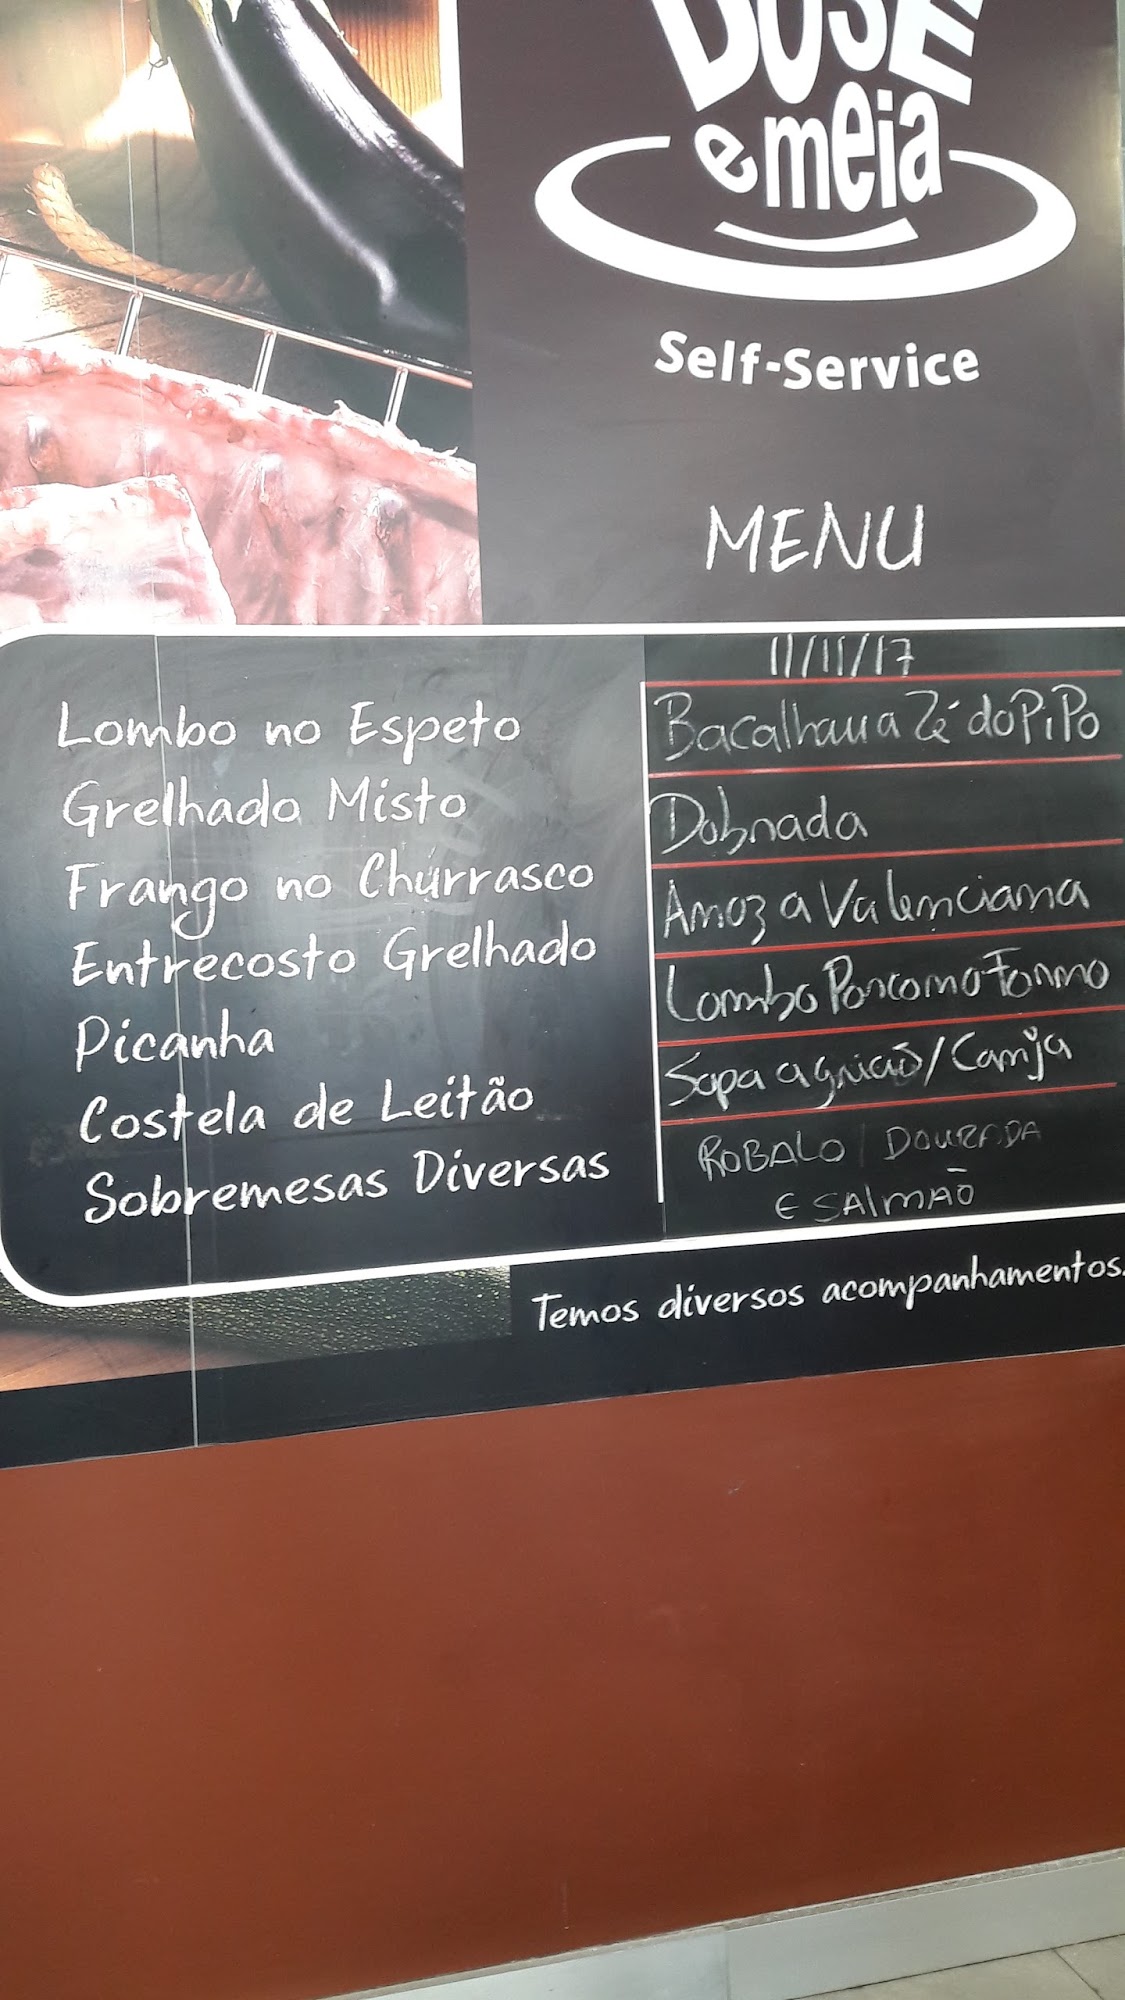 DOSE
e meia
Self-Service
MENU
Lombo no Espeto
Grelhado Misto
Frango no Churrasco
Entrecosto Grelhado
Picanha
Costela de Leitão
Sobremesas Diversas
11/11/17
Bacalhau a Zé do PiPo
Dobrada
Arroz a Valenciana
Lombo Porco no Forno
Sopa agrião/Canja
ROBALO / DOURADA
E SALMÃO
Temos diversos acompanhamentos.